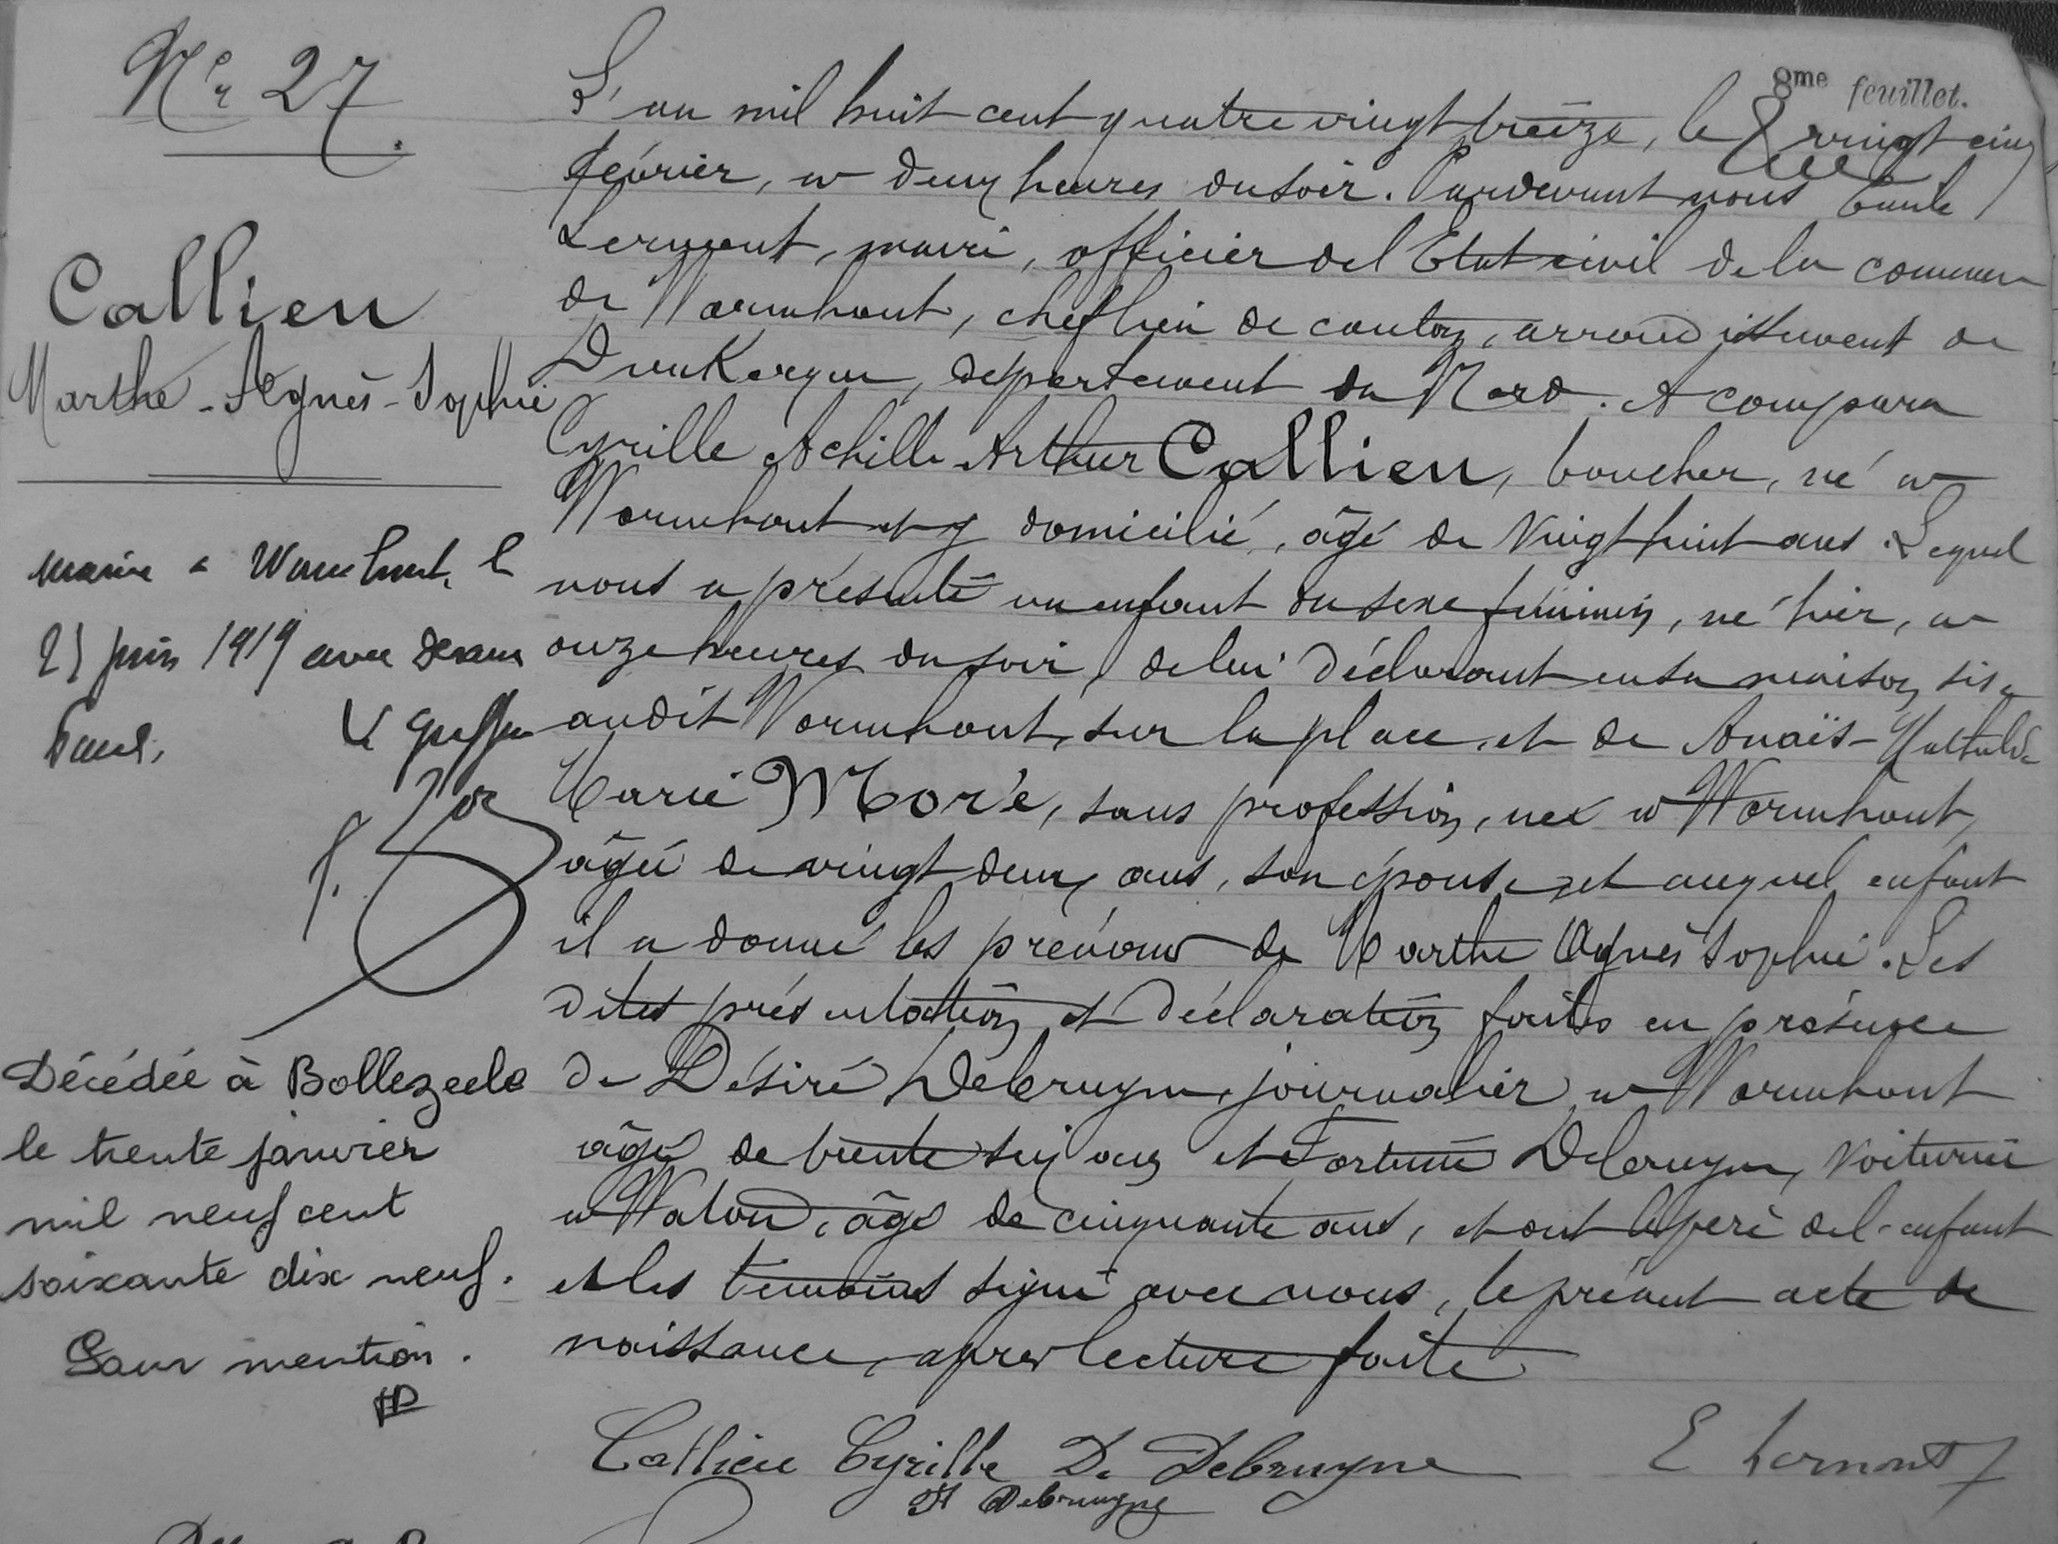 8me feuillet.
Nº 27.
Callieu
Marthe-Agnès-Sophie
mariée à Wormhout, le
21 juin 1919 avec
Paul,
Le Greffier
Décédée à Bollezeele
le trente janvier
mil neuf cent
soixante dix neuf.
Sans mention.
L'an mil huit cent quatre vingt treize, le vingt cinq
février, à deux heures du soir. Pardevant nous Emile
Lernout, maire, officier de l'Etat civil de la commune
de Wormhout, chef lieu de canton, arrondissement de
Dunkerque, département du Nord. A comparu
Cyrille Achille Arthur Callieu, boucher, né à
Wormhout et y domicilié, âgé de vingt huit ans. Lequel
nous a présenté un enfant du sexe féminin, né hier, à
onze heures du soir, de lui déclarant en sa maison, sise
audit Wormhout, sur la place, et de Anaïs-Mathilde
Marie Moré, sans profession, née à Wormhout,
âgée de vingt deux ans, son épouse, et auquel enfant
il a donné les prénoms de Marthe Agnès Sophie. Les
dites présentation et déclaration faites en présence
de Désiré Debruyne, journalier à Wormhout
âgé de trente six ans et Fortuné Debruyne, voiturier
à Watou, âgé de cinquante ans, et ont le père de l'enfant
et les témoins signé avec nous, le présent acte de
naissance, après lecture faite
Callieu Cyrille De Debruyne E Lernout
Ft Debruyne